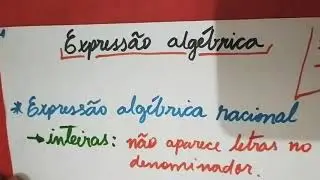 Expressão algébrica
* Expressão algébrica racional
→ inteiras: não aparece letras no
denominador.